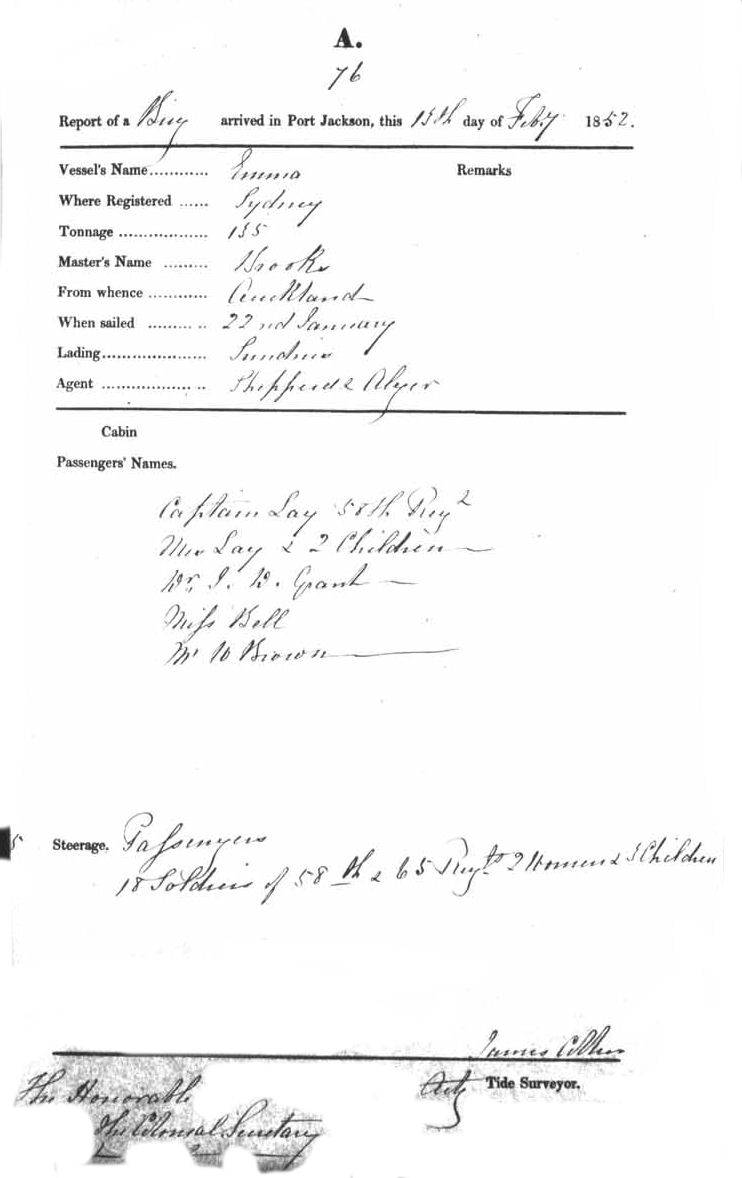 A.
76
Report of a Brig arrived in Port Jackson, this 15th day of Feby 1852.
Vessel's Name............ Emma Remarks
Where Registered ...... Sydney
Tonnage .................. 135
Master's Name ......... Brooks
From whence ............ Auckland
When sailed ............ 22nd January
Lading..................... Sundries
Agent ..................... Shepperd & Alger
Cabin
Passengers' Names.
Captain Lay 58th Reg
Mrs Lay & 2 Children
Dr. I. D. Grant
Miss Bell
Mr W Brown
5
Steerage. Passengers
18 Soldiers of 58th & 65 Regts 2 Women & 3 Children
James
Actg Tide Surveyor.
The Honorable
The Colonial Secretary